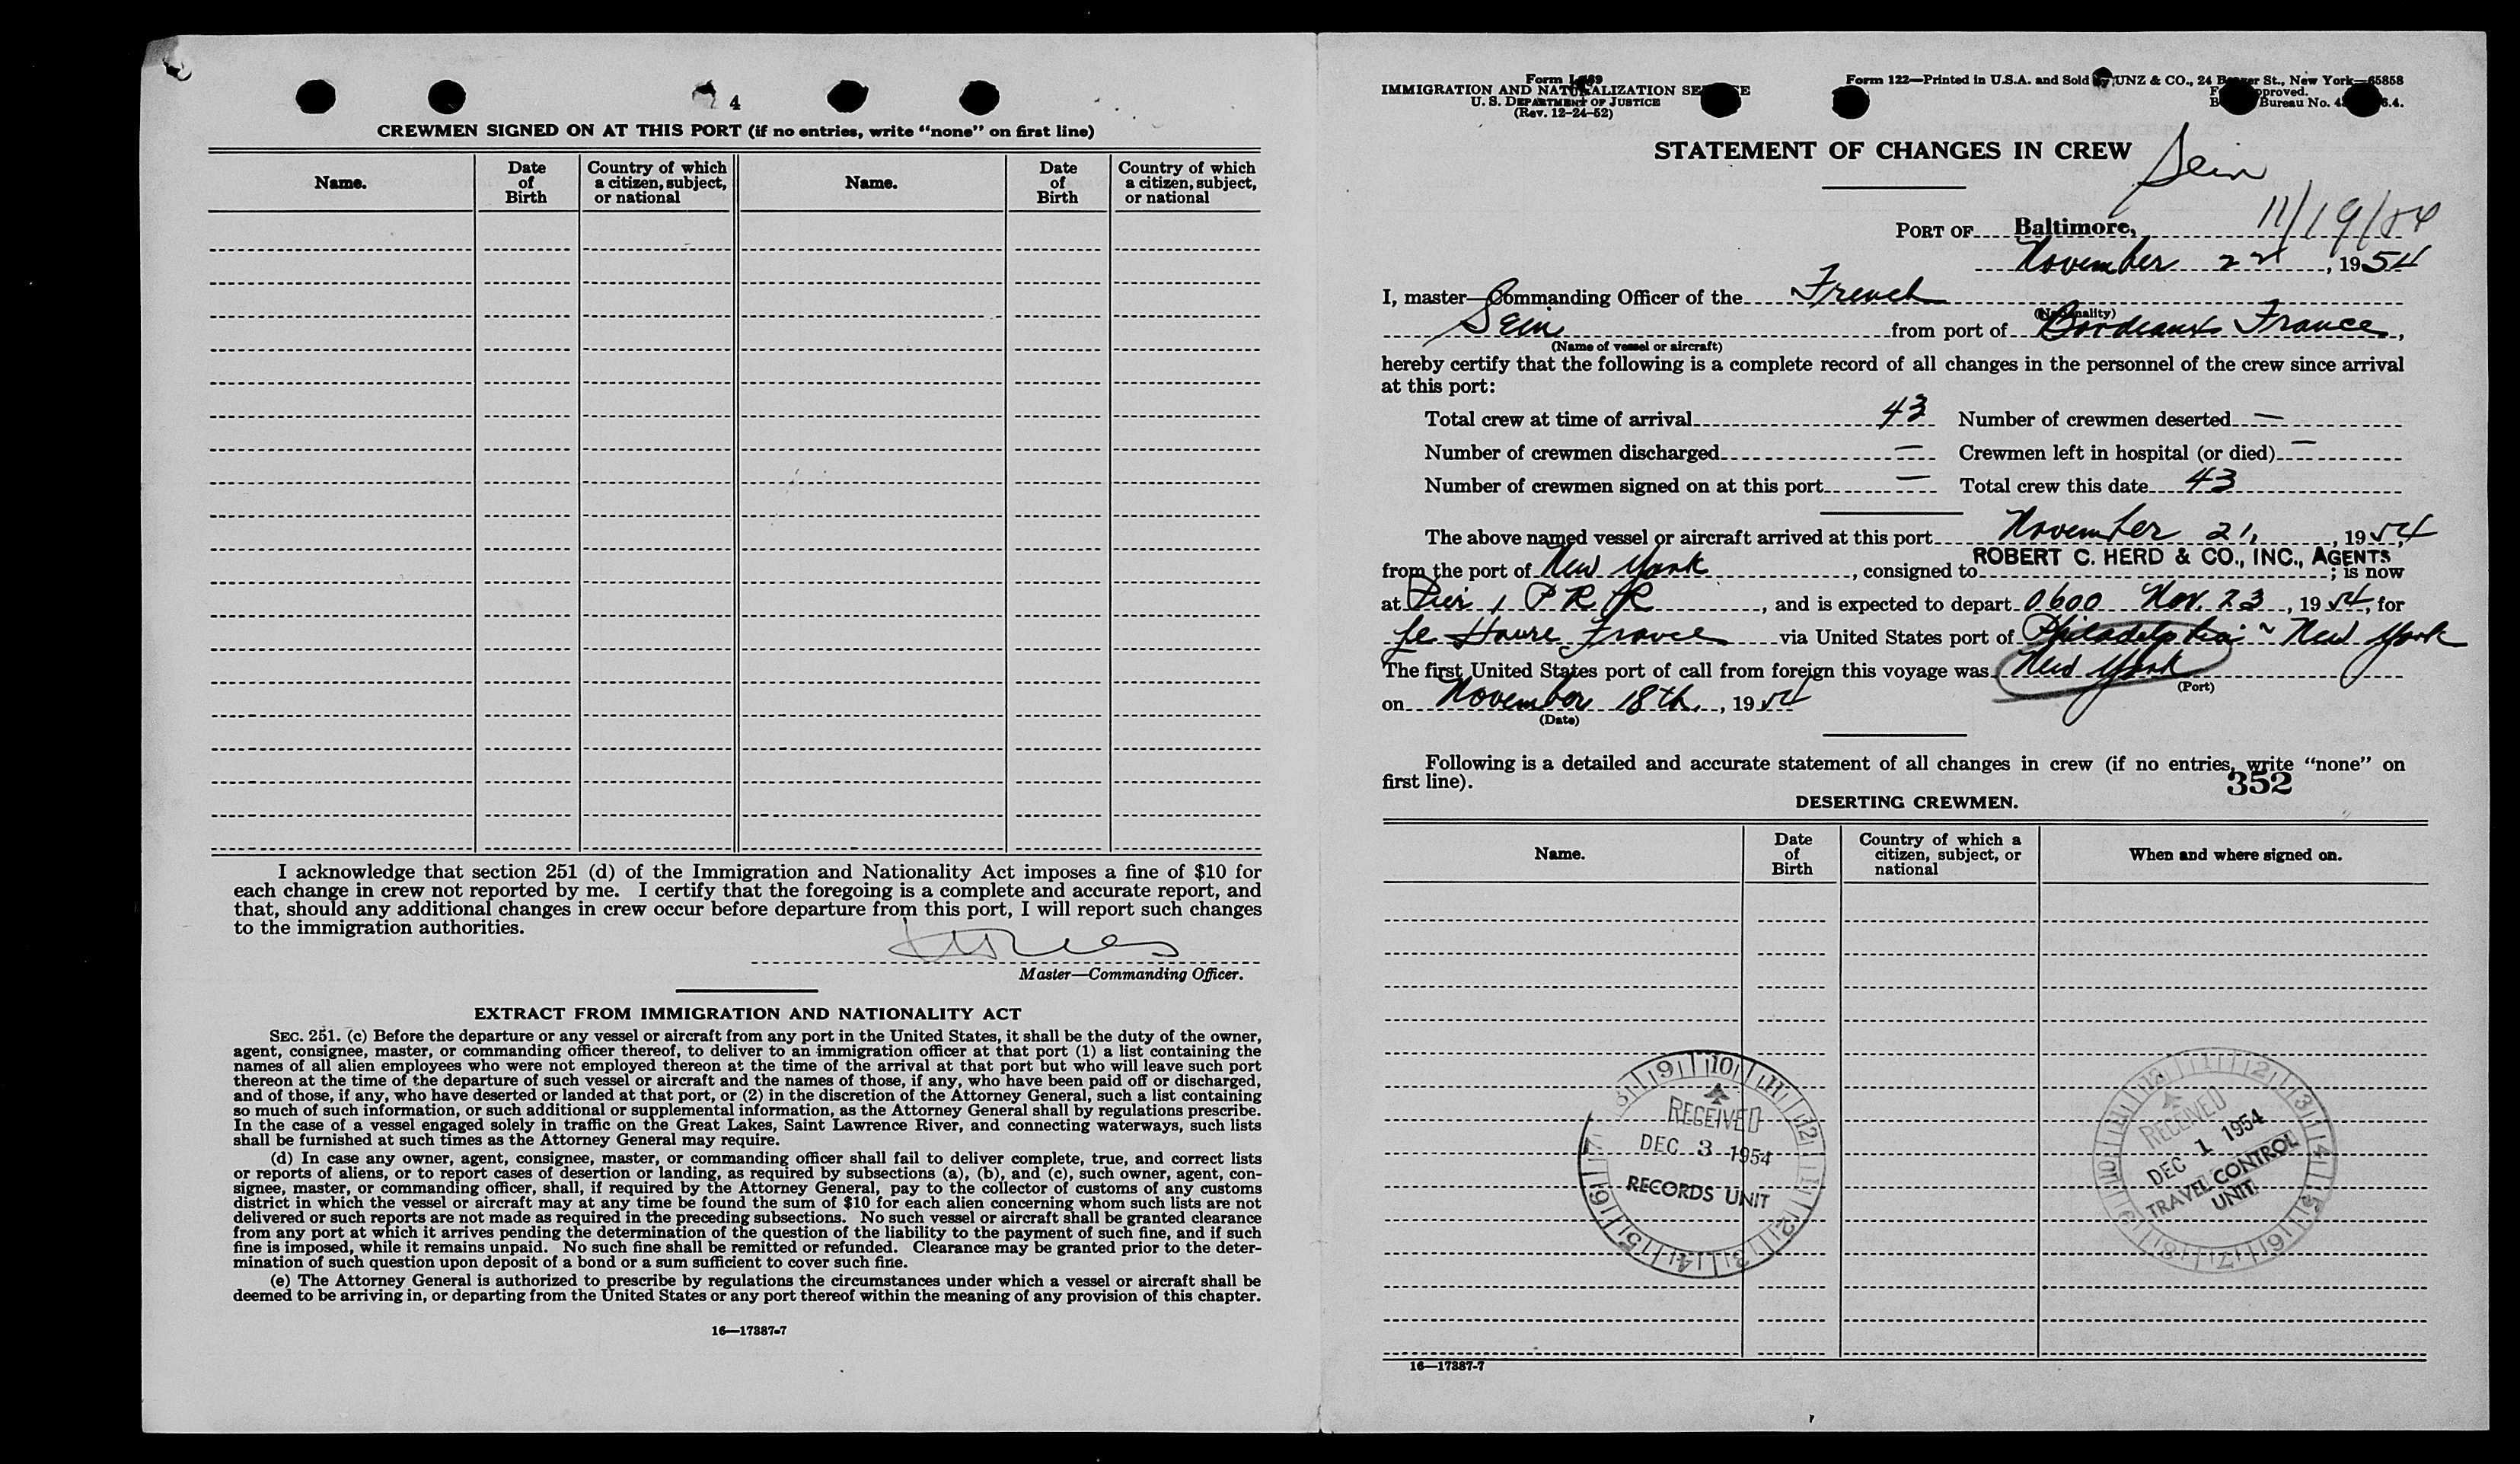 4
CREWMEN SIGNED ON AT THIS PORT (if no entries, write “none” on first line)
Name. Date of Birth Country of which a citizen, subject, or national Name. Date of Birth Country of which a citizen, subject, or national
I acknowledge that section 251 (d) of the Immigration and Nationality Act imposes a fine of $10 for
each change in crew not reported by me. I certify that the foregoing is a complete and accurate report, and
that, should any additional changes in crew occur before departure from this port, I will report such changes
to the immigration authorities.
Master—Commanding Officer.
EXTRACT FROM IMMIGRATION AND NATIONALITY ACT
SEC. 251. (c) Before the departure or any vessel or aircraft from any port in the United States, it shall be the duty of the owner,
agent, consignee, master, or commanding officer thereof, to deliver to an immigration officer at that port (1) a list containing the
names of all alien employees who were not employed thereon at the time of the arrival at that port but who will leave such port
thereon at the time of the departure of such vessel or aircraft and the names of those, if any, who have been paid off or discharged,
and of those, if any, who have deserted or landed at that port, or (2) in the discretion of the Attorney General, such a list containing
so much of such information, or such additional or supplemental information, as the Attorney General shall by regulations prescribe.
In the case of a vessel engaged solely in traffic on the Great Lakes, Saint Lawrence River, and connecting waterways, such lists
shall be furnished at such times as the Attorney General may require.
(d) In case any owner, agent, consignee, master, or commanding officer shall fail to deliver complete, true, and correct lists
or reports of aliens, or to report cases of desertion or landing, as required by subsections (a), (b), and (c), such owner, agent, con-
signee, master, or commanding officer, shall, if required by the Attorney General, pay to the collector of customs of any customs
district in which the vessel or aircraft may at any time be found the sum of $10 for each alien concerning whom such lists are not
delivered or such reports are not made as required in the preceding subsections. No such vessel or aircraft shall be granted clearance
from any port at which it arrives pending the determination of the question of the liability to the payment of such fine, and if such
fine is imposed, while it remains unpaid. No such fine shall be remitted or refunded. Clearance may be granted prior to the deter-
mination of such question upon deposit of a bond or a sum sufficient to cover such fine.
(e) The Attorney General is authorized to prescribe by regulations the circumstances under which a vessel or aircraft shall be
deemed to be arriving in, or departing from the United States or any port thereof within the meaning of any provision of this chapter.
16—17387-7
Form
IMMIGRATION AND NATURALIZATION
U. S. DEPARTMENT OF JUSTICE
(Rev. 12-24-52)
Form 122—Printed in U.S.A. and Sold UNZ & CO., 24 St., New York—65858
Bureau No.
STATEMENT OF CHANGES IN CREW
Sein
11/19/54
PORT OF Baltimore,
November 22, 1954
I, master—Commanding Officer of the French
(Nationality)
Sein from port of Bordeaux France,
(Name of vessel or aircraft)
hereby certify that the following is a complete record of all changes in the personnel of the crew since arrival
at this port:
Total crew at time of arrival 43 Number of crewmen deserted —
Number of crewmen discharged — Crewmen left in hospital (or died) —
Number of crewmen signed on at this port — Total crew this date 43
The above named vessel or aircraft arrived at this port November 21, 1954,
from the port of New York, consigned to ROBERT C. HERD & CO., INC., AGENTS; is now
at Pier 1 P R R, and is expected to depart 0600 Nov. 23, 1954, for
Le Havre France via United States port of Philadelphia ~ New York
The first United States port of call from foreign this voyage was New York
(Port)
on November 18th, 1954
(Date)
Following is a detailed and accurate statement of all changes in crew (if no entries, write “none” on
first line).
352
DESERTING CREWMEN.
Name. Date of Birth Country of which a citizen, subject, or national When and where signed on.
8 9 10 11 12 1 2 3 4 5 6 7
RECEIVED
DEC 3 1954
RECORDS UNIT
12 1 2 3 4 5 6 7 8 9 10 11
RECEIVED
DEC 1 1954
TRAVEL CONTROL
UNIT
16—17387-7